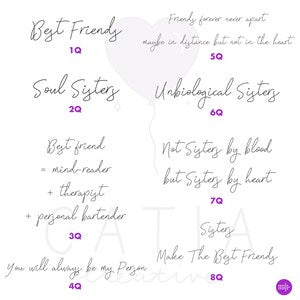 Best Friends
1Q
Soul Sisters
2Q
Best friend
= mind-reader
+ therapist
+ personal bartender
3Q
You will always be my Person
4Q
Friends forever never apart
maybe in distance but not in the heart
5Q
Unbiological Sisters
6Q
Not Sisters by blood
but Sisters by heart
7Q
Sisters
Make The Best Friends
8Q
CATJA
creative